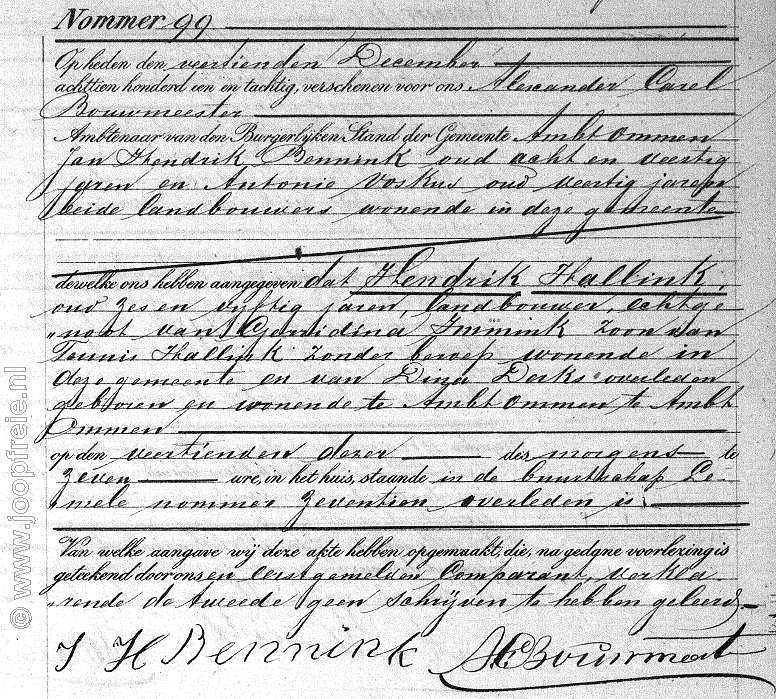 Nommer 99
Op heden den veertienden December
achttien honderd een en tachtig, verschenen voor ons Alexander Carel
Bouwmeester
Ambtenaar van den Burgerlijken Stand der Gemeente Ambt Ommen
Jan Hendrik Bennink oud acht en veertig
jaren en Antonie Voskus oud veertig jaren
beide landbouwers wonende in deze gemeente
dewelke ons hebben aangegeven dat Hendrik Hallink,
oud zes en vijftig jaren, landbouwer, echtge
"noot van Gerridina Immink zoon van
Teunis Hallink zonder beroep wonende in
deze gemeente en van Dina Derks overleden
geboren en wonende te Ambt Ommen te Ambt
Ommen
op den veertienden dezer des morgens te
zeven ure, in het huis, staande in de buurtschap Le-
mele nommer zeventien overleden is;
Van welke aangave wij deze akte hebben opgemaakt, die, na gedane voorlezing is
geteekend door ons en eerstgemelden Comparant, verkla-
"rende de tweede geen schrijven te hebben geleerd
J H Bennink
AC Bouwmeest
© www.joopfreie.nl